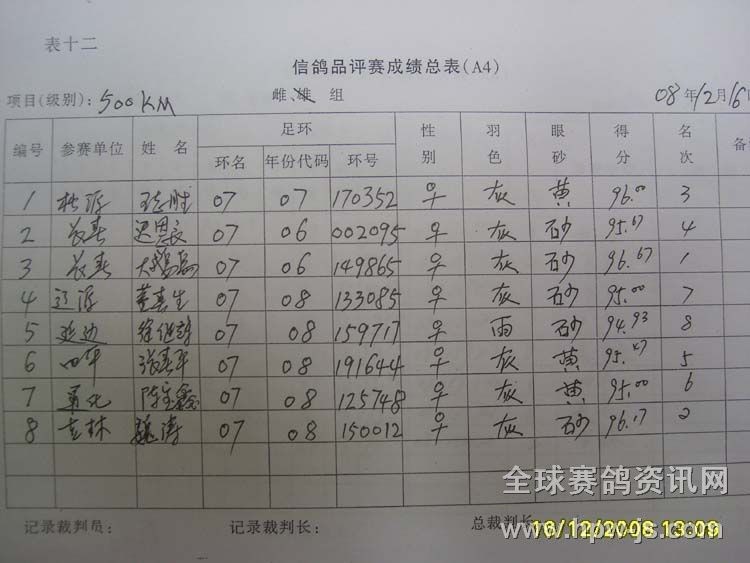 表十二
信鸽品评赛成绩总表(A4)
项目(级别): 500KM 雌、雄 组 08年12月16
编号 参赛单位 姓名 足环 性别 羽色 眼砂 得分 名次 备
环名 年份代码 环号
1 07 07 170352 ♀ 灰 黄 96.00 3
2 长春 07 06 002095 ♀ 灰 砂 95.67 4
3 长春 07 06 149865 ♀ 灰 砂 96.67 1
4 辽源 07 08 133085 ♀ 灰 砂 95.00 7
5 延边 07 08 159717 ♀ 雨 砂 94.93 8
6 四平 张春平 07 08 191644 ♀ 灰 黄 95.47 5
7 07 08 125748 ♀ 灰 黄 95.00 6
8 吉林 魏涛 07 08 150012 ♀ 灰 砂 96.17 2
全球赛鸽资讯网
记录裁判员: 记录裁判长: 总裁判长
16/12/2008 13:09